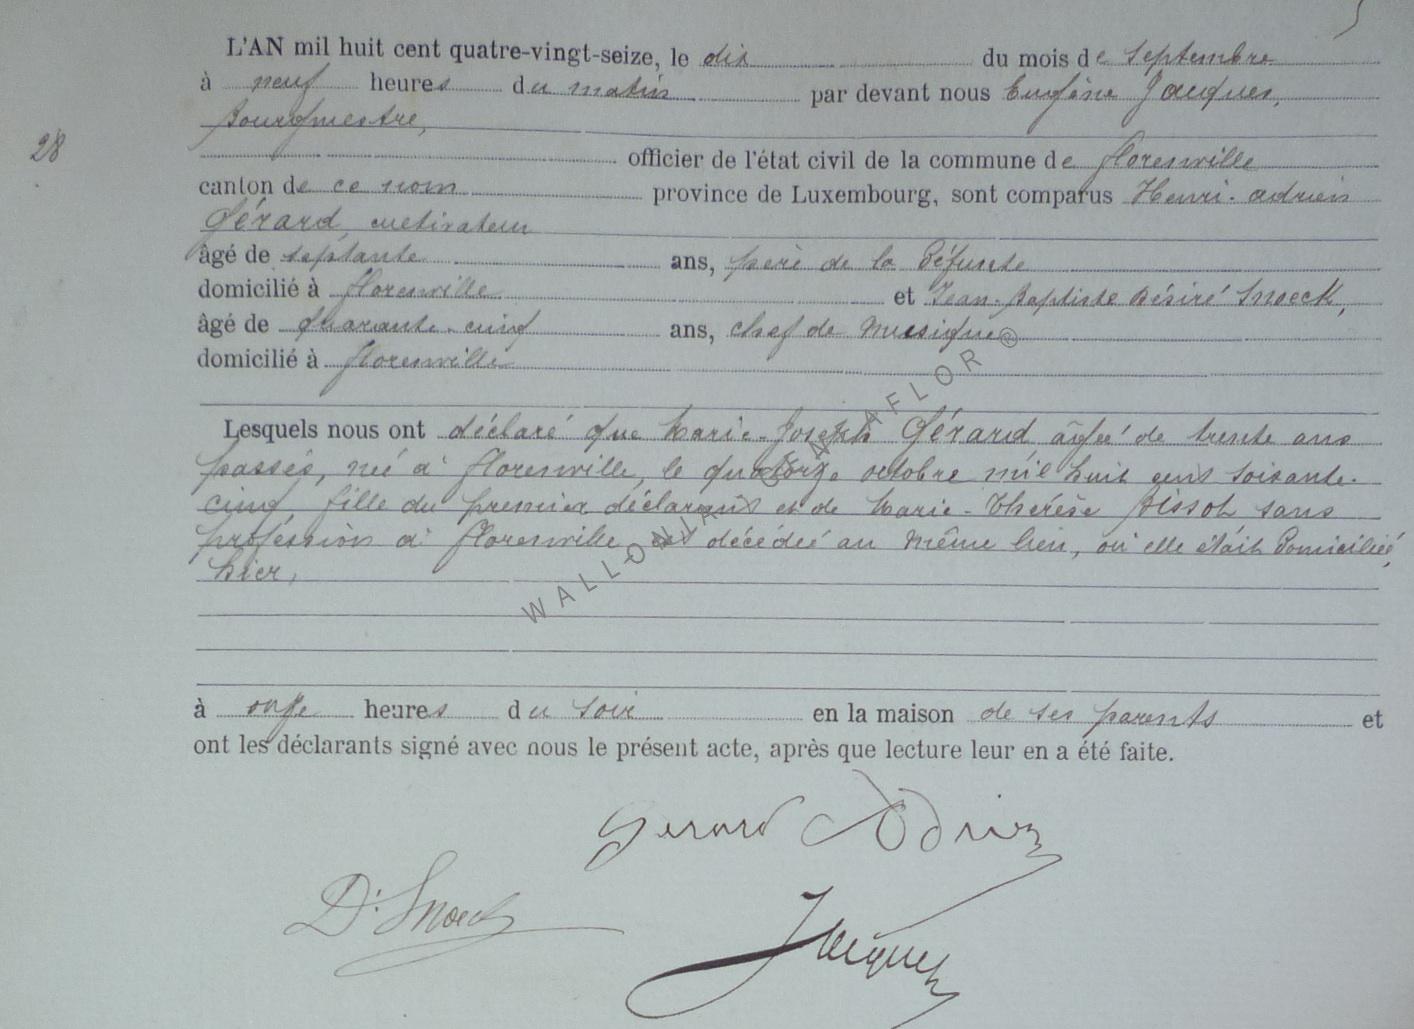 L'AN mil huit cent quatre-vingt-seize, le dix du mois de septembre
à neuf heures du matin par devant nous Eugène Jacques,
Bourgmestre,
28
officier de l'état civil de la commune de florenville
canton de ce nom province de Luxembourg, sont comparus Henri-adrien
Gérard, cultivateur
âgé de septante ans, père de la Défunte
domicilié à florenville et Jean-Baptiste Désiré Snoeck,
âgé de quarante-cinq ans, chef de Musique
domicilié à florenville
Lesquels nous ont déclaré que Marie-Joseph Gérard âgée de trente ans
passés, née à florenville, le quatorze octobre mil huit cent soixante-
cinq, fille du premier déclarant et de Marie-Thérèse Pissot sans
proféssion à florenville est décédée au même lieu, où elle était Domiciliée,
hier,
à onze heures du soir en la maison de ses parents et
ont les déclarants signé avec nous le présent acte, après que lecture leur en a été faite.
Gerard Adrien
D. Snoeck
Jacques
WALLONIA GENAFLOR ©